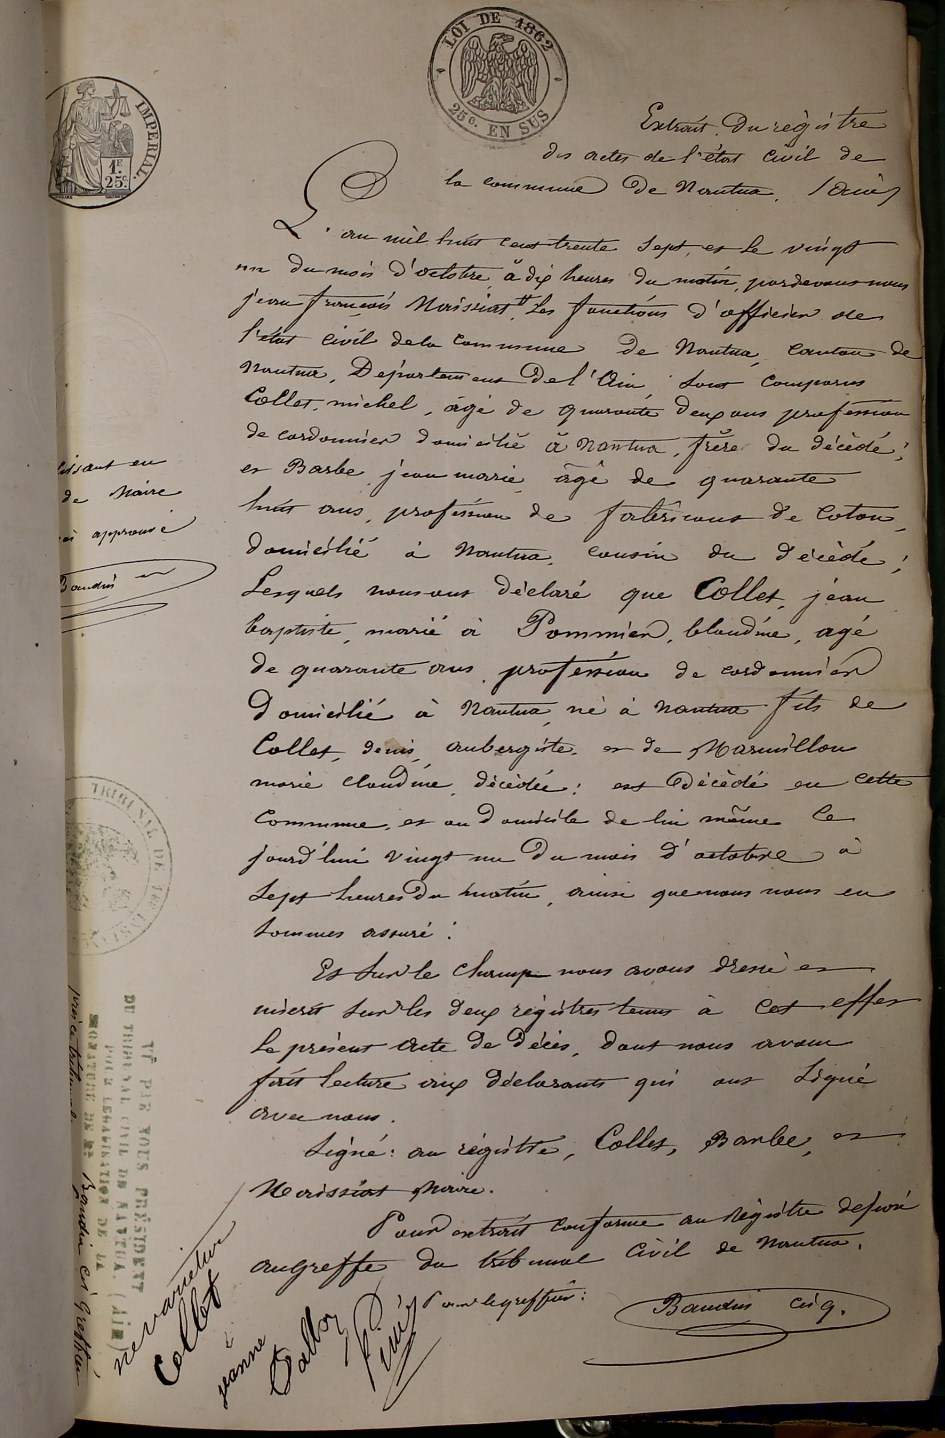 LOI DE 1862
25c. EN SUS
IMPERIAL.
1F
25c
Extrait du règistre
des actes de l'état civil de
la commune de Nantua. (Ain)
L'an mil huit cent trente sept, et le vingt
un du mois d'octobre, à dix heures du matin, pardevant nous
jean françois Maissiat # les fonctions d'officier de
l'état civil de la commune de Nantua, canton de
Nantua, Département de l'Ain, sont comparus
Collet, michel, âgé de quarante deux ans profession
de cordonnier domicilié à Nantua, frère du décédé;
et Barbe, jean marie, âgé de quarante
huit ans, profession de fabricant de coton,
domicilié à Nantua, cousin du décédé;
Lesquels nous ont déclaré que Collet, jean
baptiste, marié à Pommier, blandine, agé
de quarante ans, profession de cordonnier
Domicilié à Nantua, né à Nantua fils de
Collet, denis, aubergiste, et de Marmillon
marie claudine, décédée; est Décédé en cette
commune, et au domicile de lui même ce
jourd'hui vingt un du mois d'octobre à
sept heures du matin, ainsi que nous nous en
sommes assuré:
Et sur le champ nous avons dressé et
inscrit sur les deux règistres tenus à cet effet
le présent acte de décès, dont nous avons
fait lecture aux déclarants qui ont signé
avec nous.
Signé: au régistre, Collet, Barbe, et
Maissiat Maire.
Pour extrait conforme au régistre déposé
au greffe du tribunal civil de Nantua.
Pour le greffier:
Baudin cis g.
en
de Maire
approuvé
Baudin
TRIBUNAL DE 1re INST
VU PAR NOUS PRÉSIDENT
DU TRIBUNAL CIVIL DE NANTUA. (AIN)
POUR LÉGALISATION DE LA
SIGNATURE DE Mr Baudin cis Greffier
près ce tribunal
ne varietur
Collet
jeanne